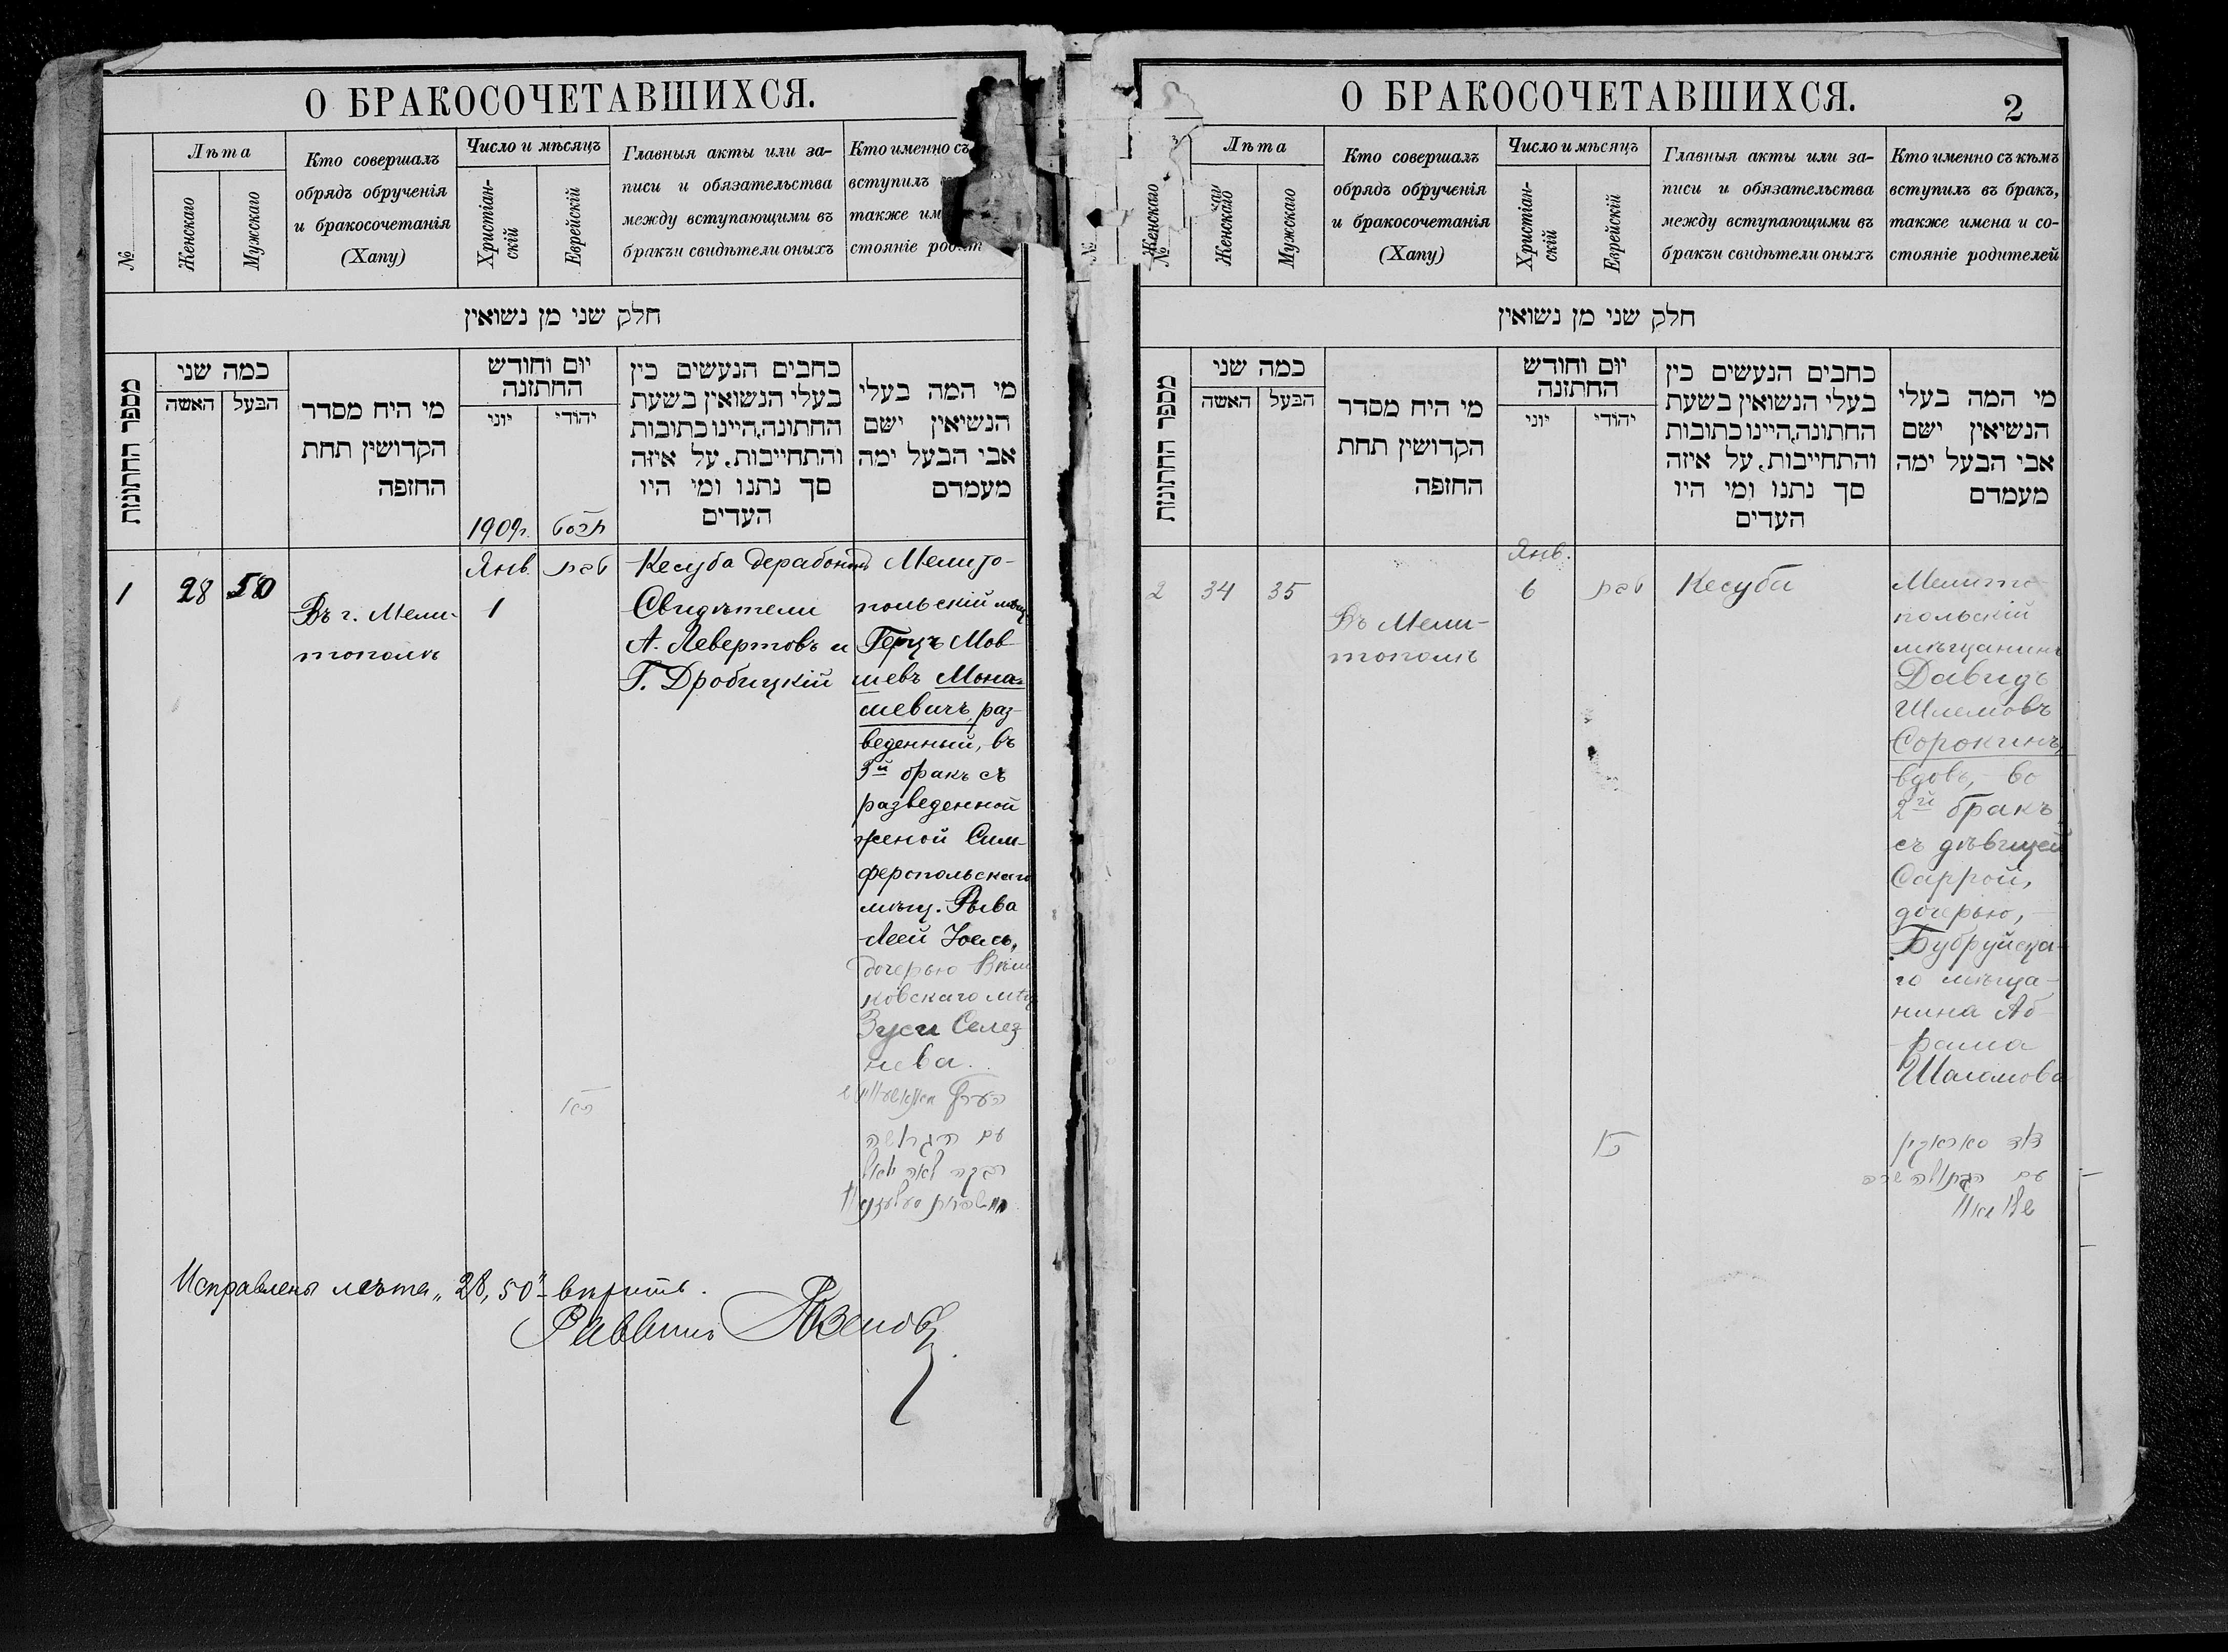 О БРАКОСОЧЕТАВШИХСЯ.
№
Лѣта
Женскаго
Мужскаго
Кто совершалъ
обрядъ обрученія
и бракосочетанія
(Хапу)
Число и мѣсяцъ
Христіан-
скій
Еврейскій
Главныя акты или за-
писи и обязательства
между вступающими въ
бракъи свидѣтели оныхъ
Кто именно съ
вступилъ
также
стояніе
חלק שני מן נשואין
מספר החתונות
כמה שני
האשה
הבעל
מי היח מסדר
הקדושין תחת
החזפה
יום וחודש
החתזנה
יוני
יהודי
כחבים הנעשים כין
בעלי הנשואין בשעת
החתונה,היינו כתובות
והתחייבות, על איזה
סך נתנו ומי היו
העדים
מי המה בעלי
הנשיאין ישם
אבי הבעל ימה
מעמדם
1909г.
1
28
50
Въ г. Мели-
тополѣ
Янв.
1
טבת
Кесуба дерабононъ
Свидѣтели
А. Левертовъ и
Г. Дробицкій
Мелито-
польскій мѣщ.
Герцъ Мов-
шевъ Мона-
шевичъ, раз-
веденный, въ
3й бракъ съ
разведенной
женой Сим-
феропольскаго
мѣщ.
Леей
дочерью
ковскаго мѣщ
Зуси Селез-
нева.
עם הגרושה
רבקה לאה
Исправлены лѣта „28, 50“ вѣрить.
Раввинъ
О БРАКОСОЧЕТАВШИХСЯ.
2
№
Женскаго
Лѣта
Женскаго
Мужскаго
Кто совершалъ
обрядъ обрученія
и бракосочетанія
(Хапу)
Число и мѣсяцъ
Христіан-
скій
Еврейскій
Главныя акты или за-
писи и обязательства
между вступающими въ
бракъи свидѣтели оныхъ
Кто именно съ кѣмъ
вступилъ въ бракъ,
также имена и со-
стояніе родителей
חלק שני מן נשואין
מספר החתונות
כמה שני
האשה
הבעל
מי היח מסדר
הקדושין תחת
החזפה
יום וחודש
החתזנה
יוני
יהודי
כחבים הנעשים כין
בעלי הנשואין בשעת
החתונה,היינו כתובות
והתחייבות, על איזה
סך נתנו ומי היו
העדים
מי המה בעלי
הנשיאין ישם
אבי הבעל ימה
מעמדם
2
34
35
Въ Мели-
тополѣ
Янв.
6
טבת
Кесуба
Мелито-
польскій
мѣщанинъ
Давидъ
Шлемовъ
Сорокинъ,
вдовъ, во
2й бракъ
съ дѣвицей
Саррой,
дочерью,
Бобруйска-
го мѣща-
нина Аб-
рама
Шаломова
דוד סאראקין
עם הבתולה שרה